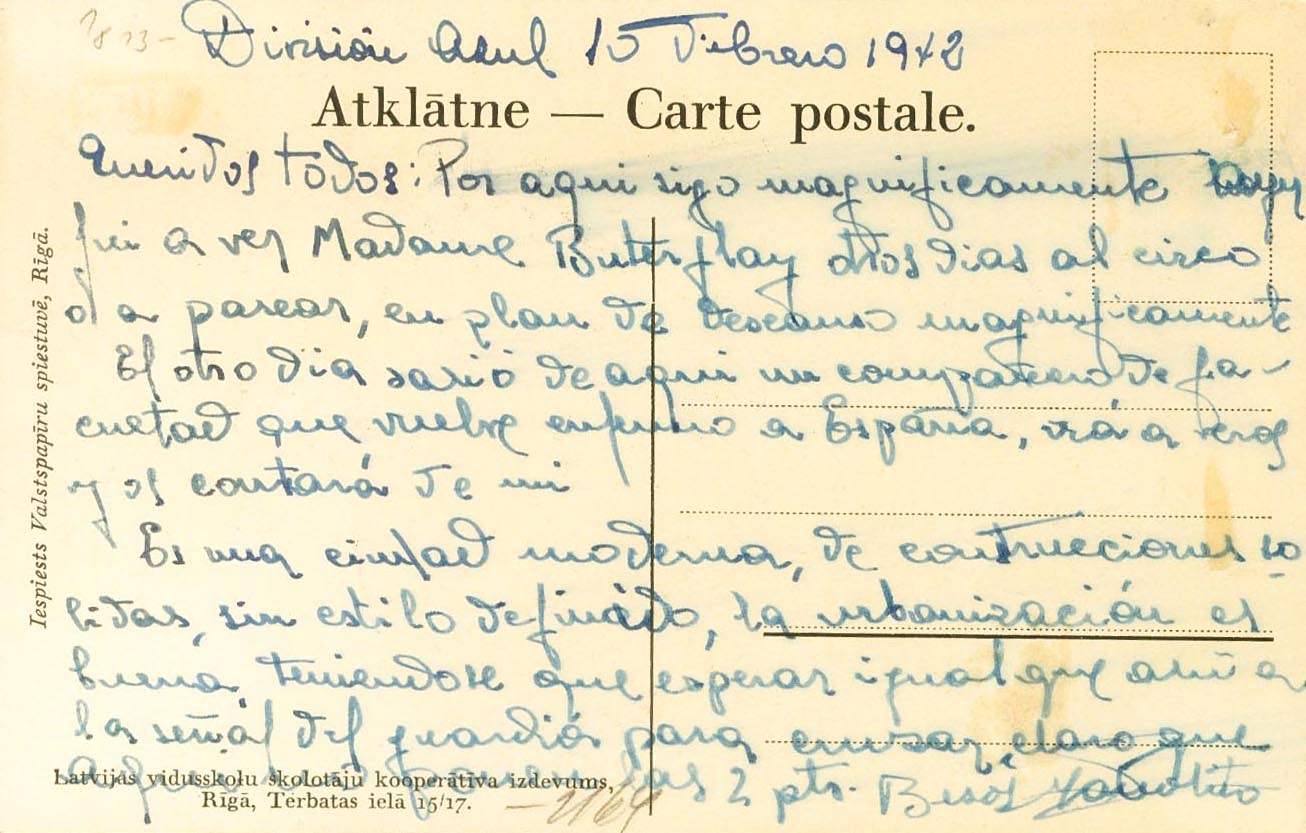 1813-
División Asul 15 Febrero 1942
Atklātne — Carte postale.
Queridos todos: Por aqui sigo magnificamente
fui a ver Madame Buterflay otros dias al circo
o a pasear, en plan de descanso magnificamente
El otro dia sarió de aqui un compañero de fa-
cultad que vuelve enfermo a España, irá a veros
y os contará de mi
Es una ciudad moderna, de contrucciones so-
lidas, sin estilo definido, la urbanización es
buena, teniendose que esperar igual que ahi a
la señal del guardia para cruzar, claro que
aqui 2 pts. Besos
Iespiests Valstspapīru spiestuvē, Rīgā.
Latvijas vidusskolu skolotāju kooperātīva izdevums,
Rīgā, Tērbatas ielā 15/17.